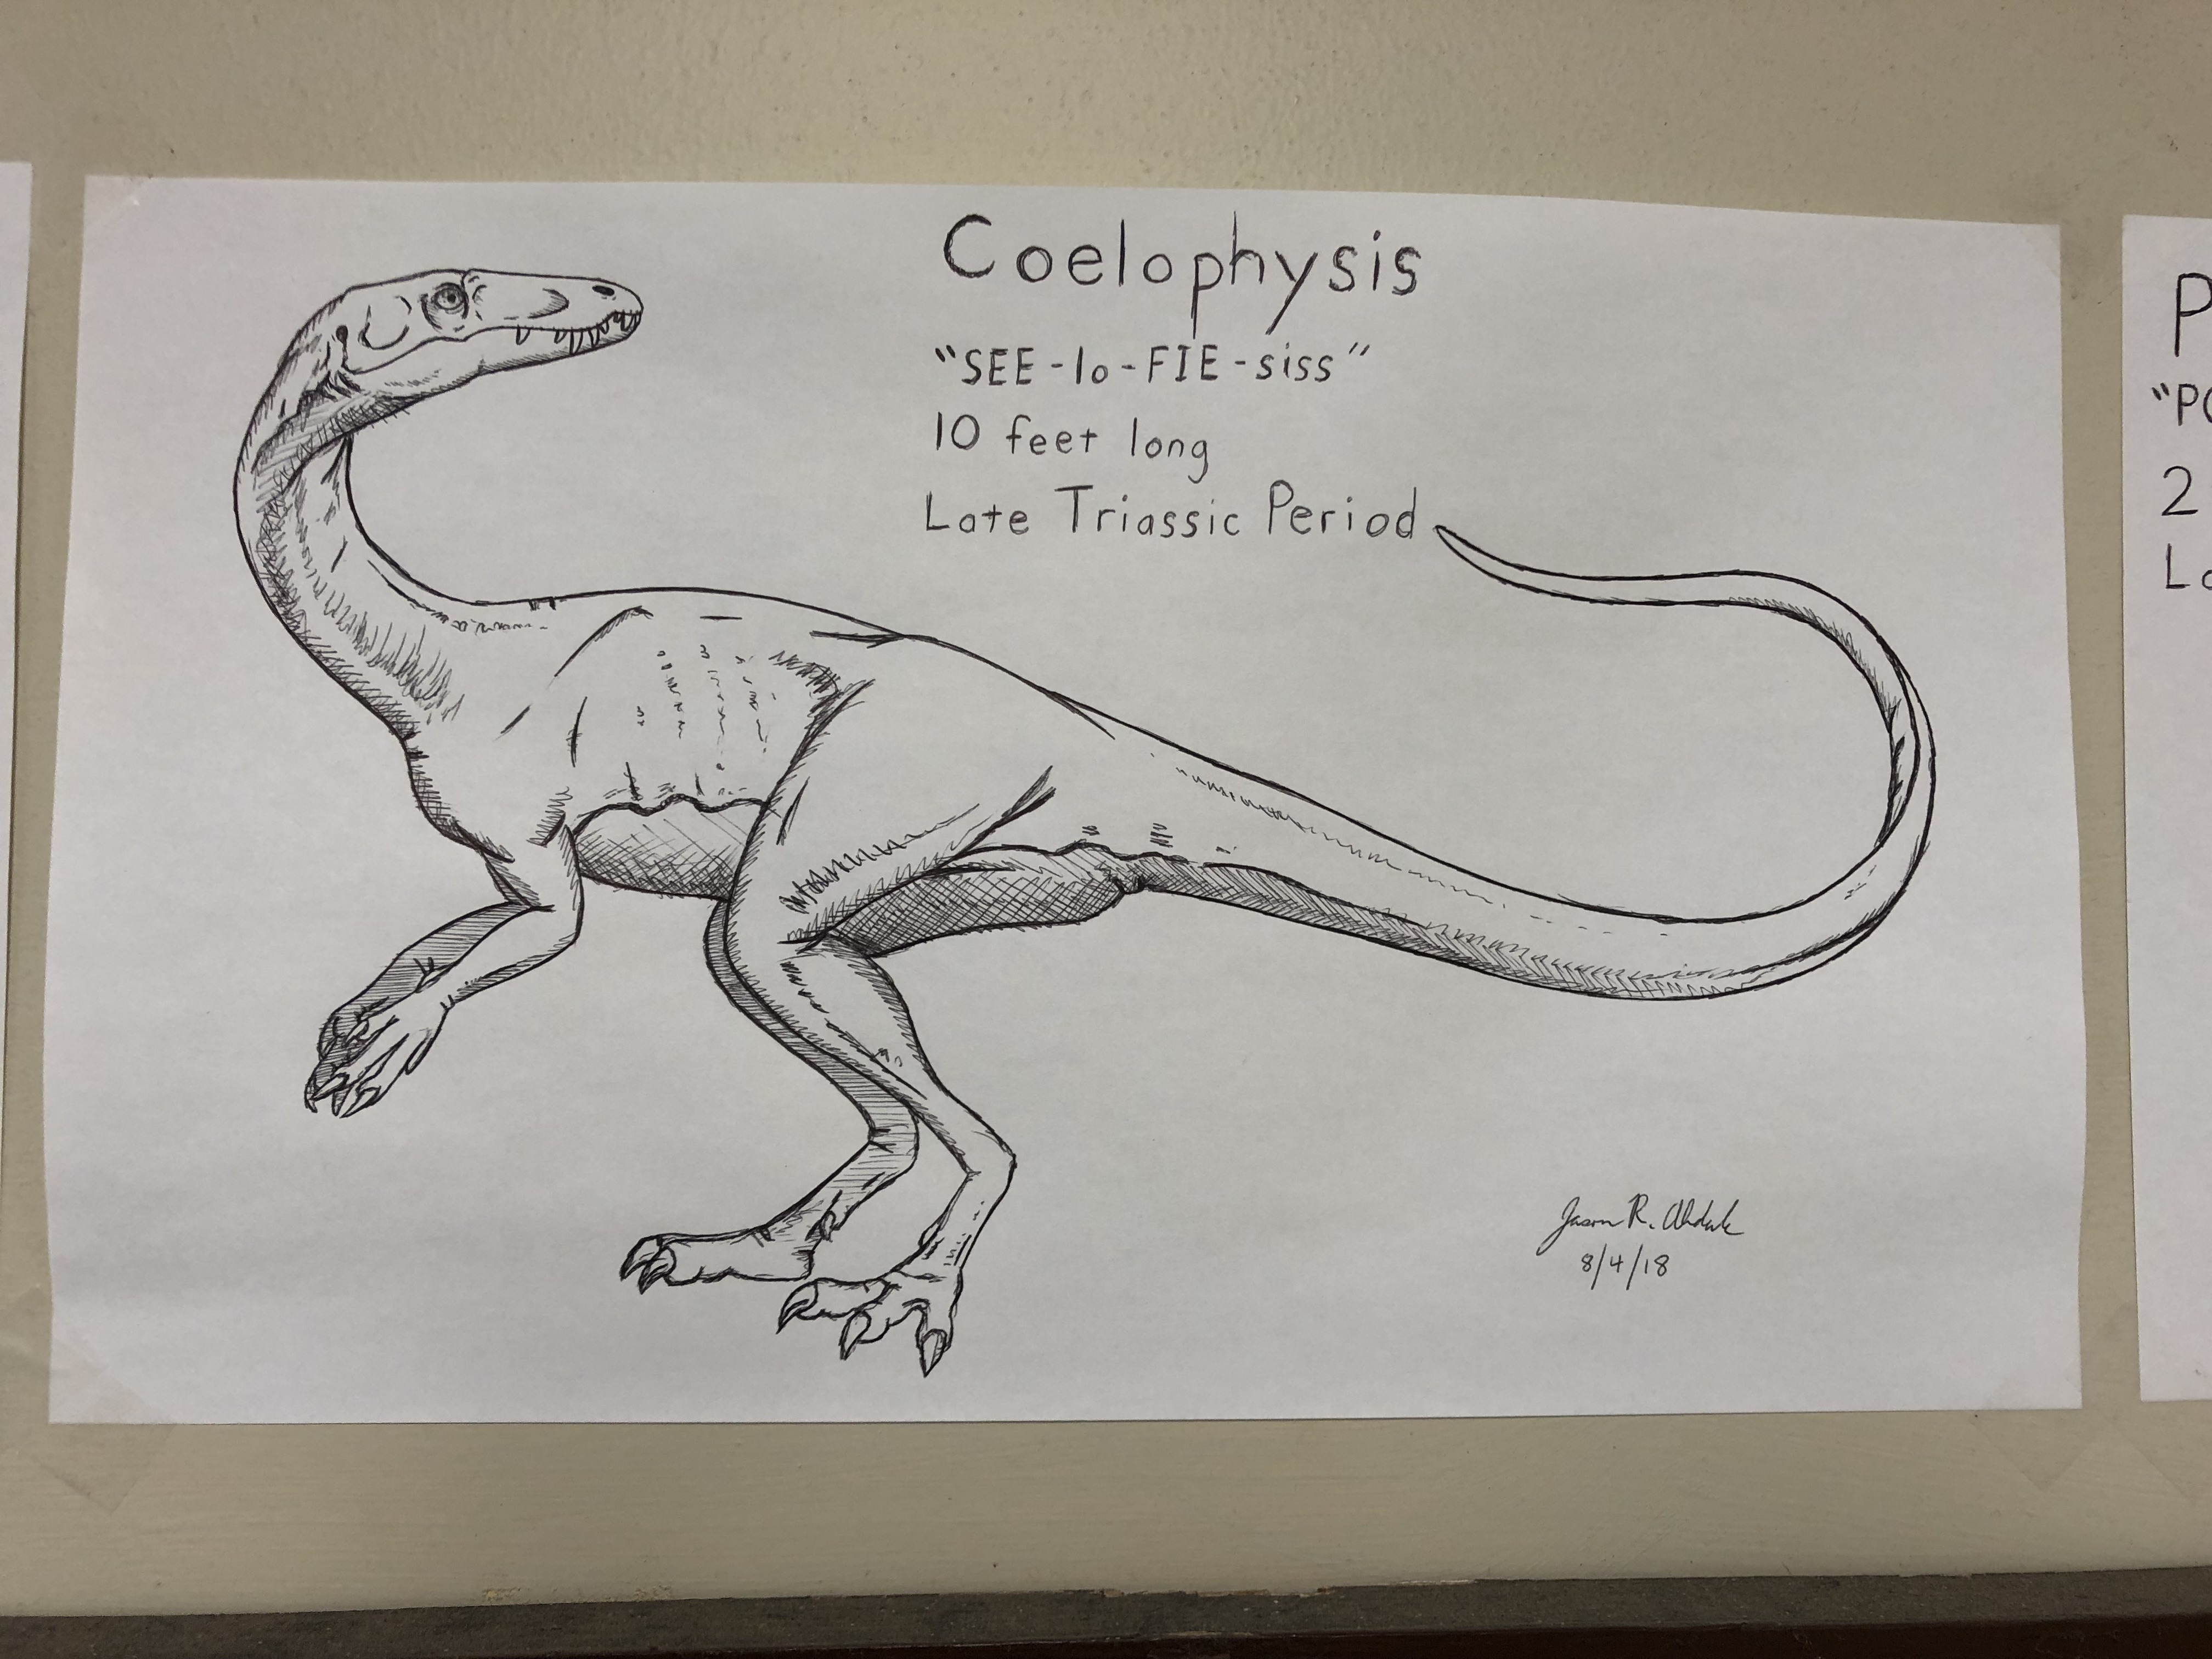 Coelophysis
"SEE-lo-FIE-siss"
10 feet long
Late Triassic Period
Jason R.
8/4/18
P
"PO
2
La